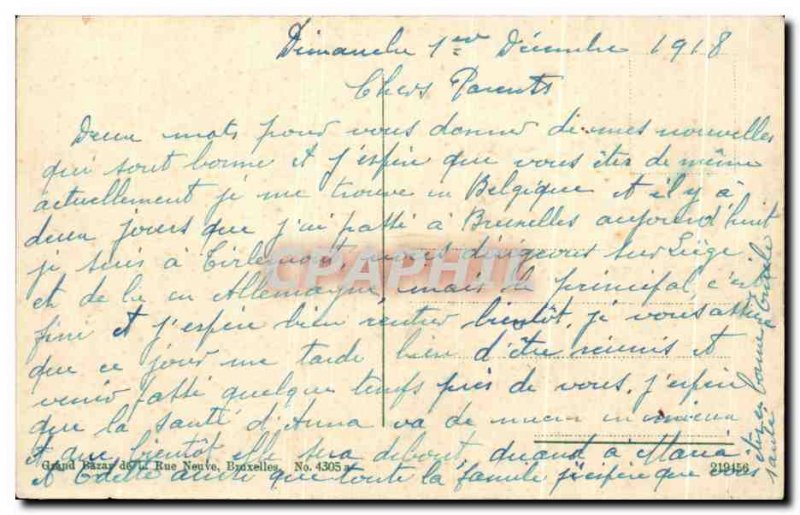 Dimanche 1er Décembre 1918
Chers Parents
Deux mots pour vous donner de mes nouvelles
qui sont bonne et j'espère que vous êtes de même
actuellement je me trouve en Belgique et il y à
deux jours que j'ai passé à Bruxelles aujourd'huit
je suis à Tirlemont, nous dirigeons sur Liège
et de la en Allemagne, mais le principal, c'est
fini et j'espère bien rentrer bientôt, je vous assure
que ce jour me tarde bien d'être réunis et
venir passé quelque temps près de vous, j'espère
que la santé d'Anna va de mieux en mieux
et que bientôt elle sera debout, quand a Maria
et Odette ainsi que toute la famille j'espère que vous
êtes en bonne
santé
CPAPHIL
Grand Bazar de la Rue Neuve, Bruxelles. No. 4305 a.
219456